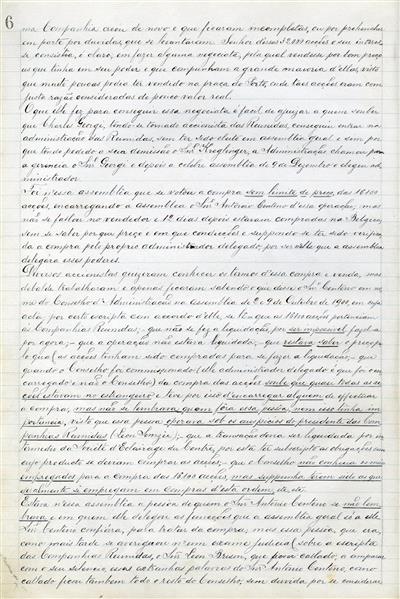 6
ma Companhia crem de novo e que ficaram incompletas, ou por preencher
em parte por duvidas que se levantaram. Senhor d'essas 2:000 acções o seu interes-
se consistia, é claro, em fazer alguma negociata, pela qual vendesse por bom preço
as que tinha em seu poder e que compunham a grande maioria d'ellas, visto
que muito poucas podia ter vendido na praça do Porto, onde taes acções eram com
justa razão consideradas de pouco valor real.
O que elle fez para conseguir essa negociata é facil de ajuizar a quem souber
que Charles Georgi, tendo-se tornado accionista das Reunidas, conseguiu entrar na
administração das Reunidas, sem ter sido eleito em assemblêa geral e sem por-
que tendo pedido a sua demissão o Snr. , a Administração chamou para
a gerencia o Snr. Georgi e depois a celebre assemblêa de 9 de Dezembro o elegeu ad-
ministrador.
Foi n'essa assemblêa que se votou a compra sem limite de preço, das 18:100
acções, encarregando a assemblêa o Snr. Antonio Centeno d'essa operação, mas
não se fallou no vendedor e 12 dias depois estavam compradas na Belgica,
sem se saber por que preço e em que condicções e suppondo-se ter sido verifica-
da a compra pelo proprio administrador delegado, por ser este que a assemblêa
delegara esses poderes.
Diversos accionistas quizeram conhecer os termos d'essa compra e venda, mas
debalde trabalharam e apenas ficaram sabendo o que disse o Snr. Centeno em no-
me do Conselho d'Administração na assemblêa de 2 e 9 de Outubro de 1900, em cuja
acta, por certo escripta com accordo d'elle, se lê que as 18:100 acções pertenciam
ás Companhias Reunidas; que não se fez a liquidação, por ser impossivel fazel-a
por agora; que a operação não estava liquidada; que restava saber o preço pe-
lo qual as acções tinham sido compradas para se fazer a liquidação; que
quando o Conselho foi commissionado (elle administrador delegado é que foi en-
carregado e não o Conselho) da compra das acções soube que quasi todas as ac-
ções estavam no estrangeiro e teve por isso d'encarregar alguem de effectuar
a compra, mas não se lembrava quem fôra essa pessoa, nem isso tinha im-
portancia, visto que essa pessoa operava sob os auspicios do presidente das Com-
panhias Reunidas (Leon Somzée); que a transacção devia ser liquidada por in-
termedio da Société d'Eclairage du Centre, por esta ter subscripto as obrigações com
cujo producto se deviam comprar as acções; que o Conselho não conhecia os meios
empregados para a compra das 18:100 acções, mas suppunha serem sido os que
geralmente se empregam em compras d'esta ordem, etc. etc.
Estava n'essa assemblêa a pessoa de quem o Snr. Antonio Centeno se não lem-
brava e em quem elle delegara as funcções que a assemblêa geral só a elle
Snr. Centeno conferira, para tratar da compra, mas essa pessoa, que era,
como mais tarde se averiguou n'um exame judicial sobre a escripta
das Companhias Reunidas, o Snr. Leon Bruem, que ficou callado, a amparar
com o seu silencio, essas extranhas palavras do Snr. Antonio Centeno, como
callado ficou tambem todo o resto do Conselho, sem duvida, por se considerar